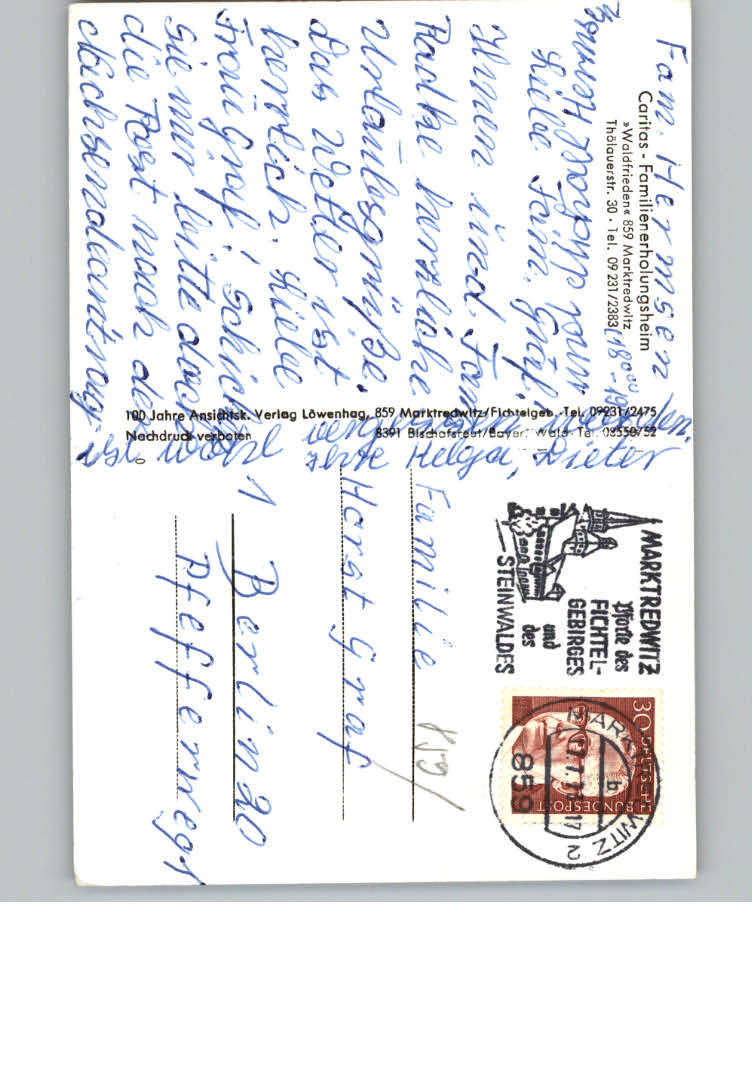 Fam. Hermsen
Caritas - Familienerholungsheim
»Waldfrieden« 859 Marktredwitz
Thölauerstr. 30 · Tel. 09 231/2383 (18°° - 19
Liebe Fam. Graf!
Ihnen und Fam.
Radtke herzliche
Urlaubsgrüße.
Das Wetter ist
herrlich. Liebe
Frau Graf! Schicken
Sie mir bitte doch
die Post nach der
Nachsendeantrag
ist wohl vergessen worden.
Helga, Dieter
100 Jahre Ansichtsk. Verlag Löwenhag, 859 Marktredwitz/Fichtelgeb. · Tel. 09231/2475
Nachdruck verboten 8391 Bischofsreut/Bayer. Wald · Tel. 08550/752
MARKTREDWITZ
Pforte des
FICHTEL-
GEBIRGES
und
des
STEINWALDES
30 DEUTSCHE
BUNDESPOST
MARKTREDWITZ 2
b
17
859
Familie
859
Horst Graf
1 Berlin 20
Pfefferweg 1